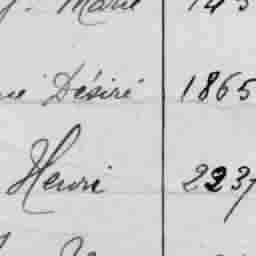 Marie 145
Désiré 1865
Henri 2237